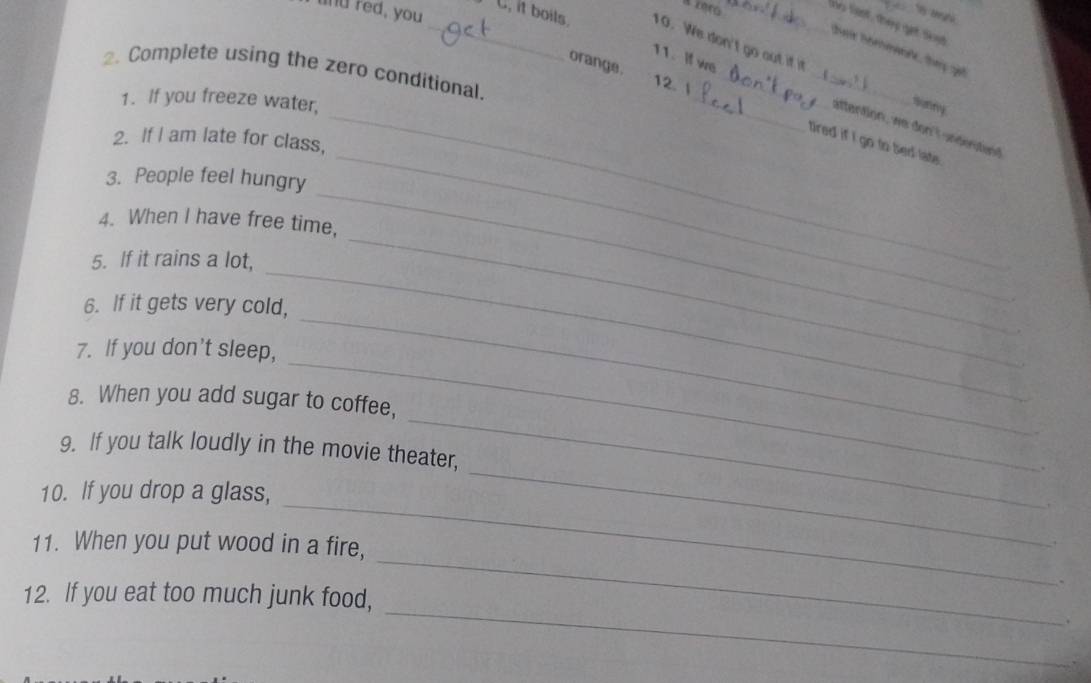 red, you get orange.
C, it boils.
10. We don't go out if it isn't sunny.
11. If we don't pay attention, we don't understand
12. I feel tired if I go to bed late.
their homework, they get
2. Complete using the zero conditional.
1. If you freeze water,
2. If I am late for class,
3. People feel hungry
4. When I have free time,
5. If it rains a lot,
6. If it gets very cold,
7. If you don't sleep,
8. When you add sugar to coffee,
9. If you talk loudly in the movie theater,
10. If you drop a glass,
11. When you put wood in a fire,
12. If you eat too much junk food,